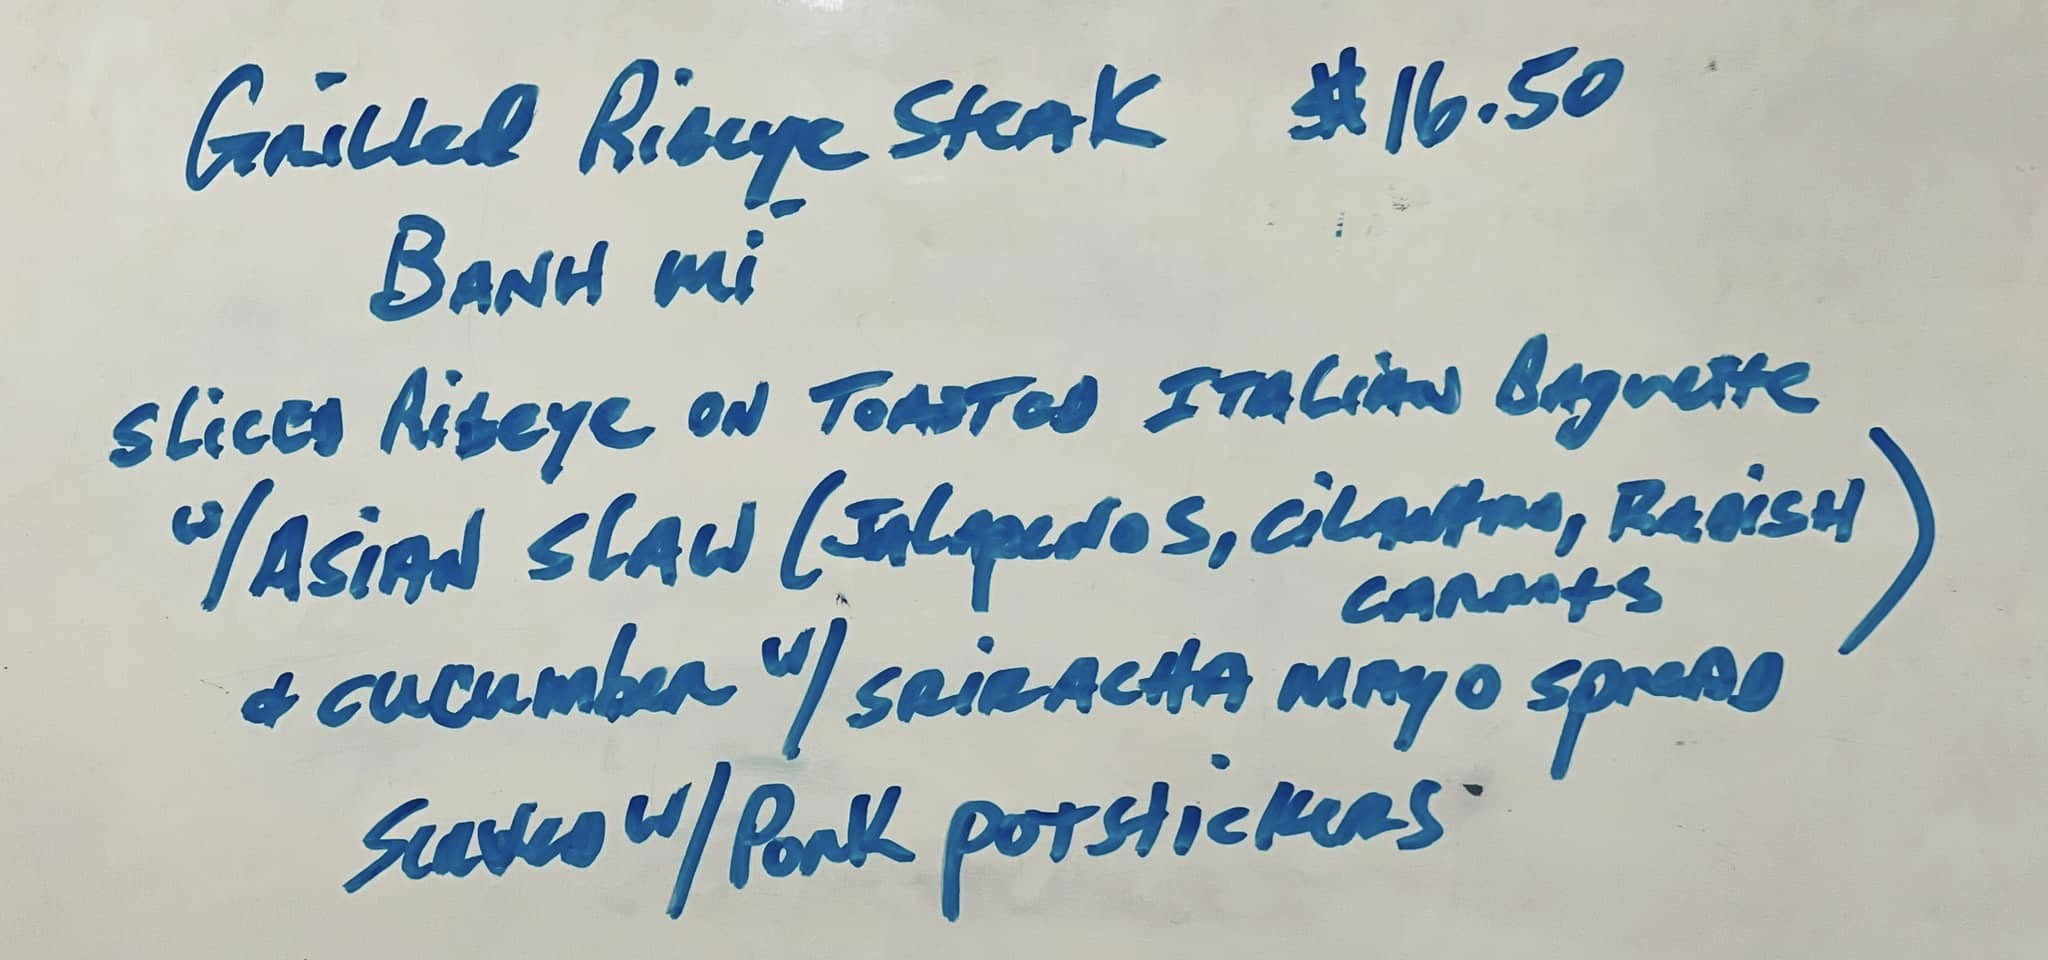 Grilled Ribeye Steak $16.50
Banh mi
Sliced Ribeye on Toasted Italian Baguette
w/ Asian Slaw (Jalapenos, Cilantro, Radish
Carrots)
& cucumber w/ Sriracha mayo spread
Served w/ Pork potstickers